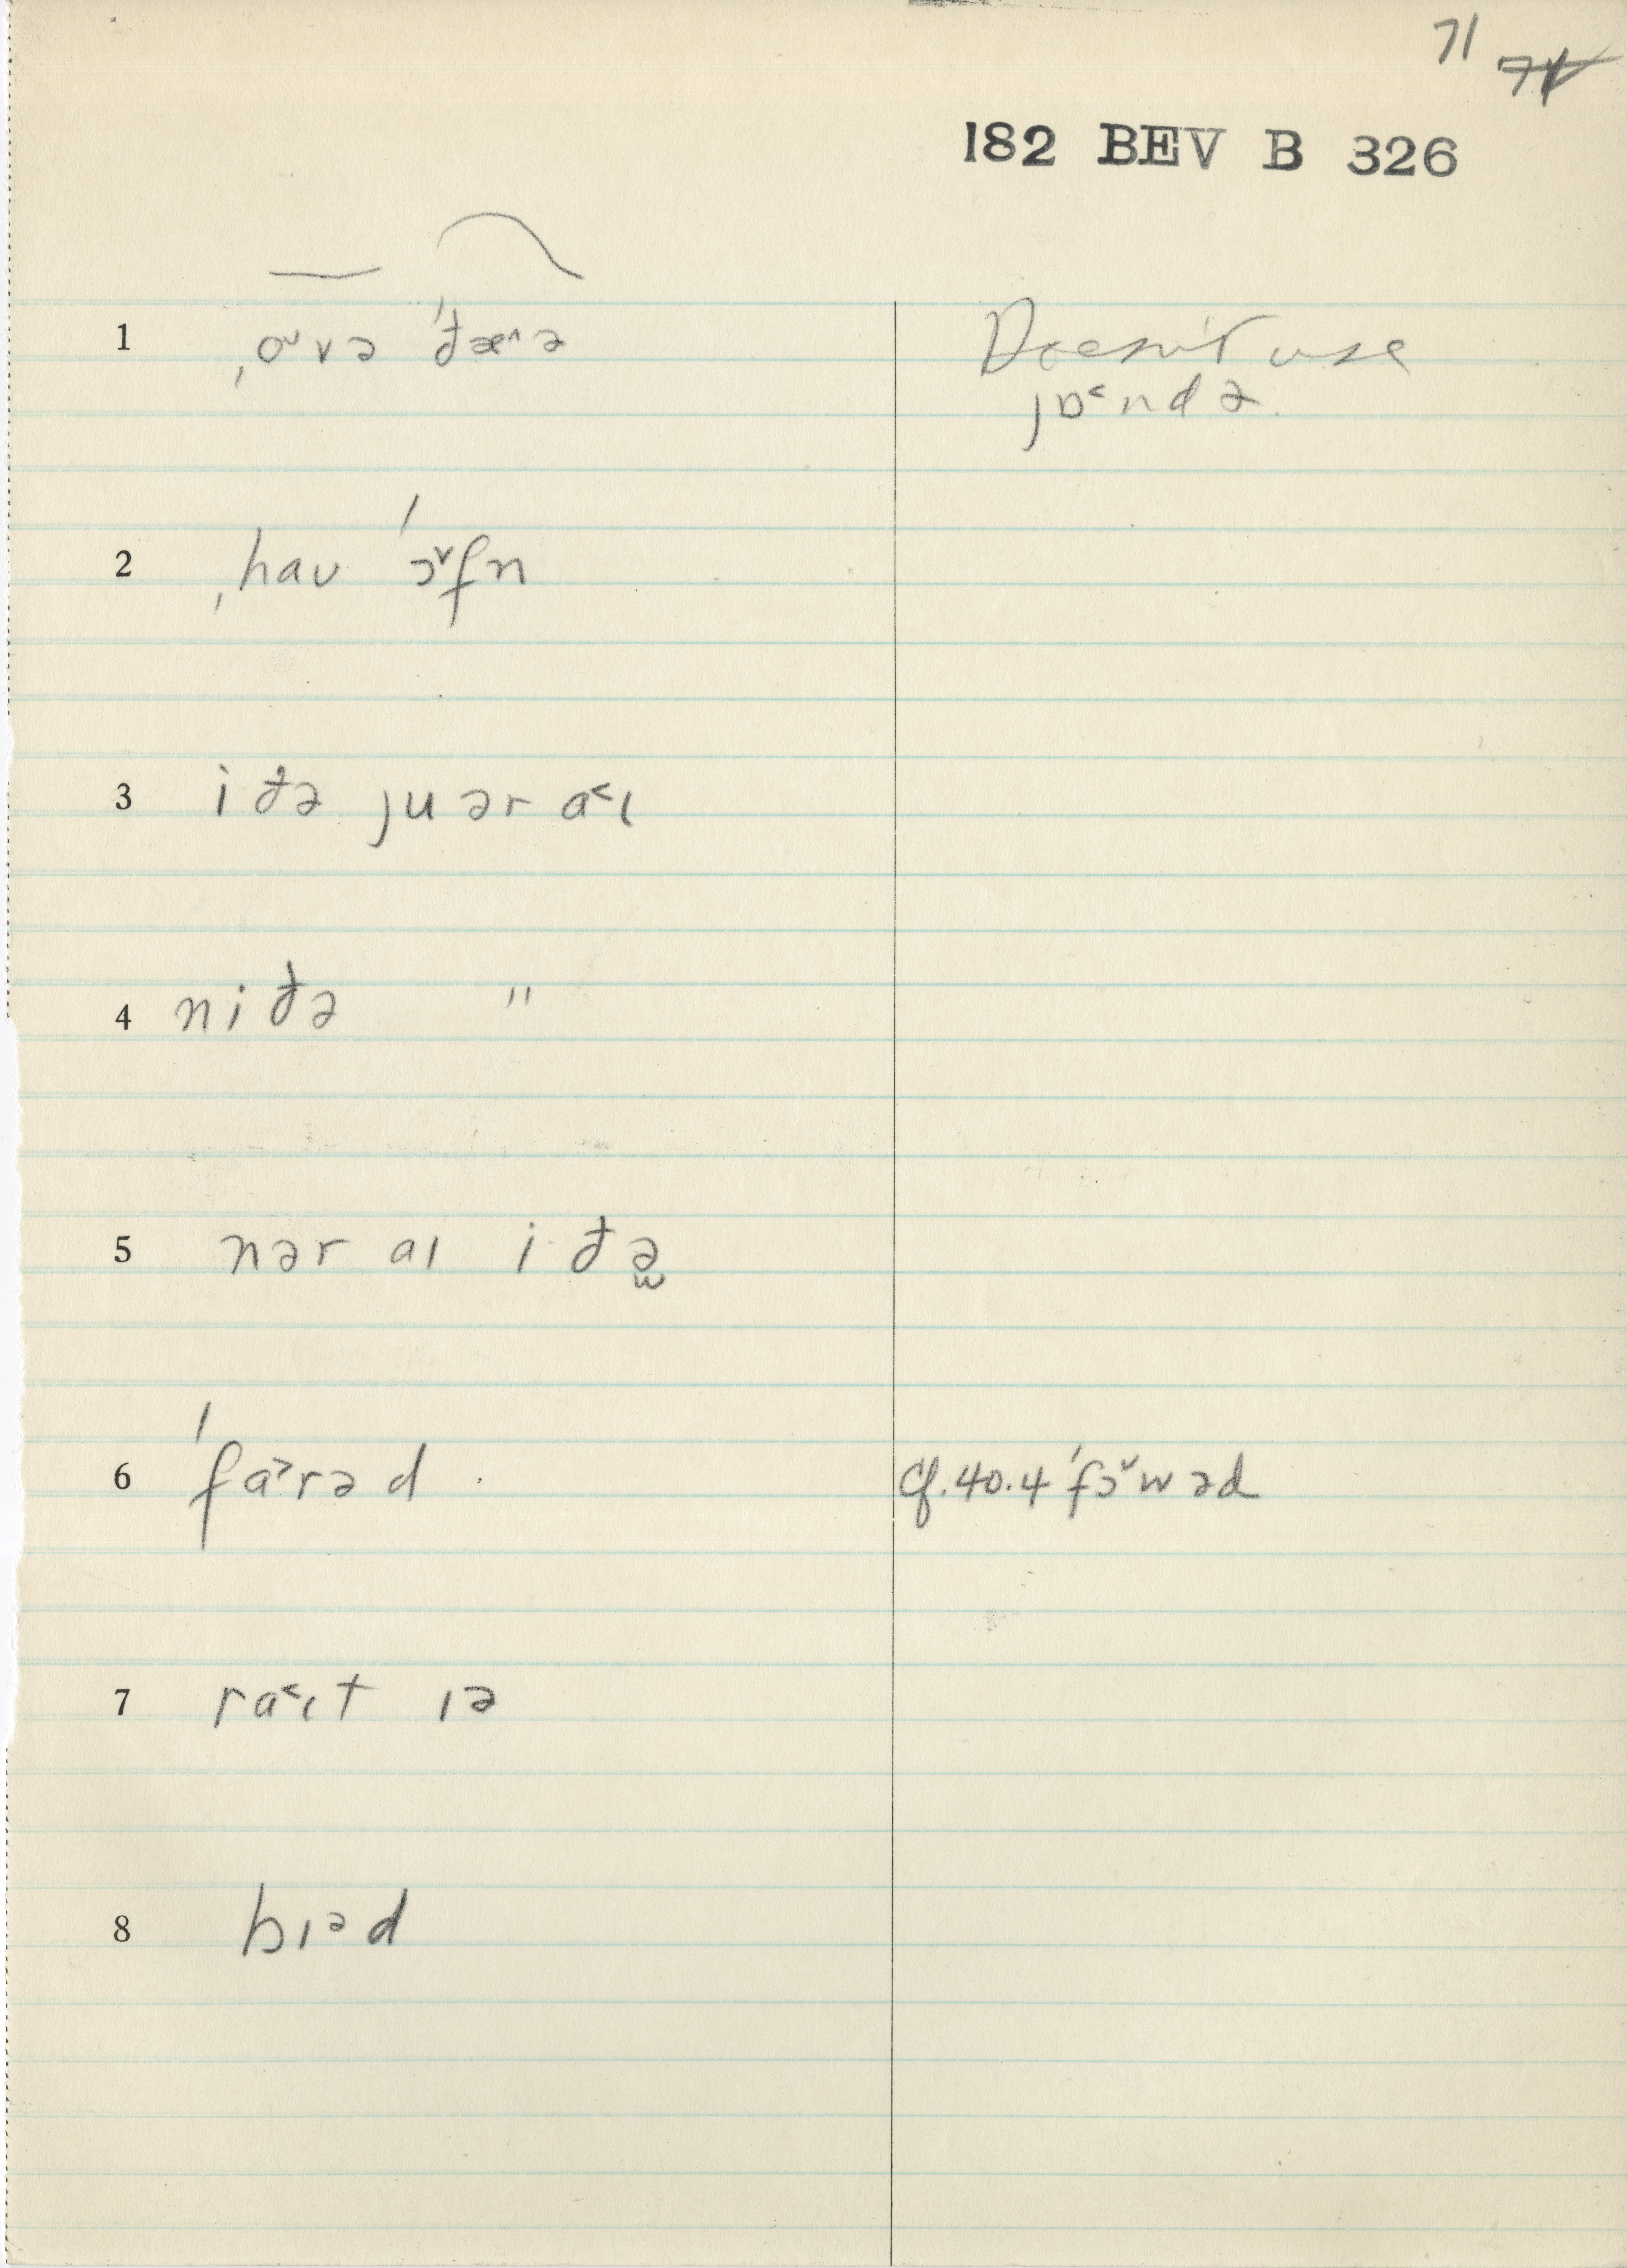 71 74
182 BEV B 326
1 ˌo˅və ˈðæ˄ə Doesn't use
jɒ˂ndə.
2 ˌhaʊ ˈɔ˅fn
3 iðə ju ər a˂ɪ
4 niðə "
5 nər aɪ iðə̯
6 ˈfa˃rəd cf. 40.4 ˈfɔ˅wəd
7 ra˂ɪt ɪə
8 bɪᵊd